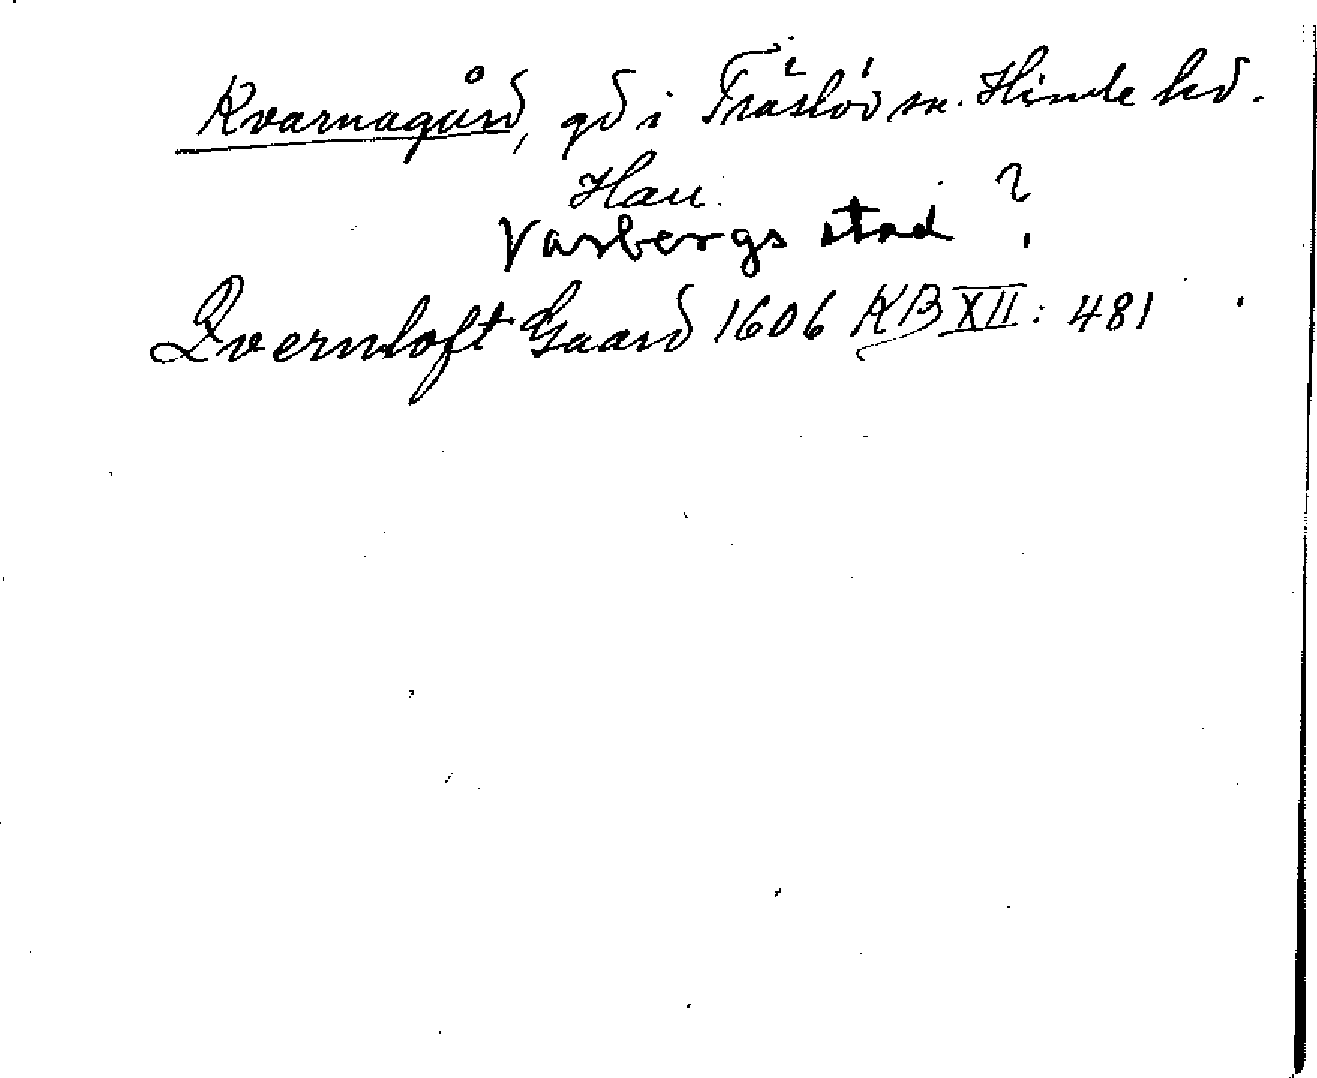 Kvarnagård, gd i Träslöv sn. Himle hd.
Hall.
Varbergs stad ?
Qvernloft Gaard 1606 KB XII: 481